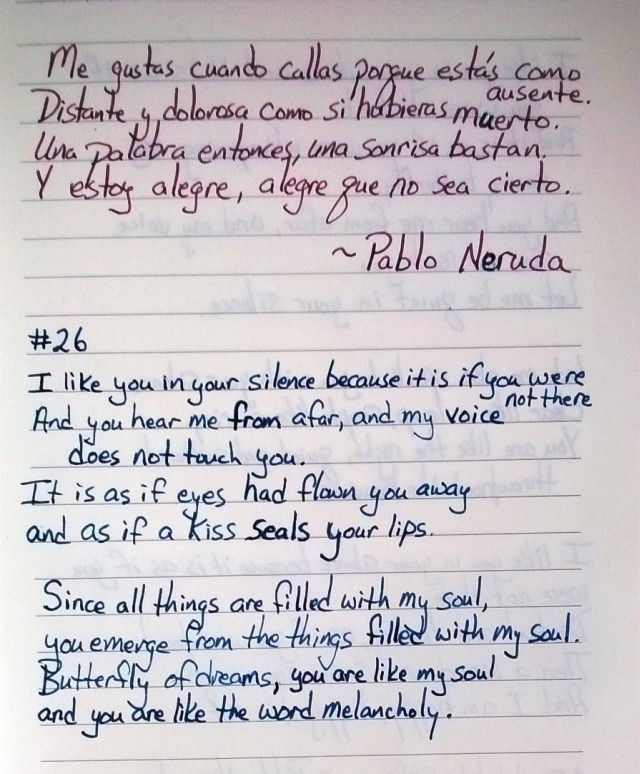 Me gustas cuando callas porque estás como
ausente.
Distante y dolorosa como si hubieras muerto.
Una palabra entonces, una sonrisa bastan.
Y estoy alegre, alegre que no sea cierto.
~ Pablo Neruda
#26
I like you in your silence because it is if you were
not there
And you hear me from afar, and my voice
does not touch you.
It is as if eyes had flown you away
and as if a kiss seals your lips.
Since all things are filled with my soul,
you emerge from the things filled with my soul.
Butterfly of dreams, you are like my soul
and you are like the word melancholy.